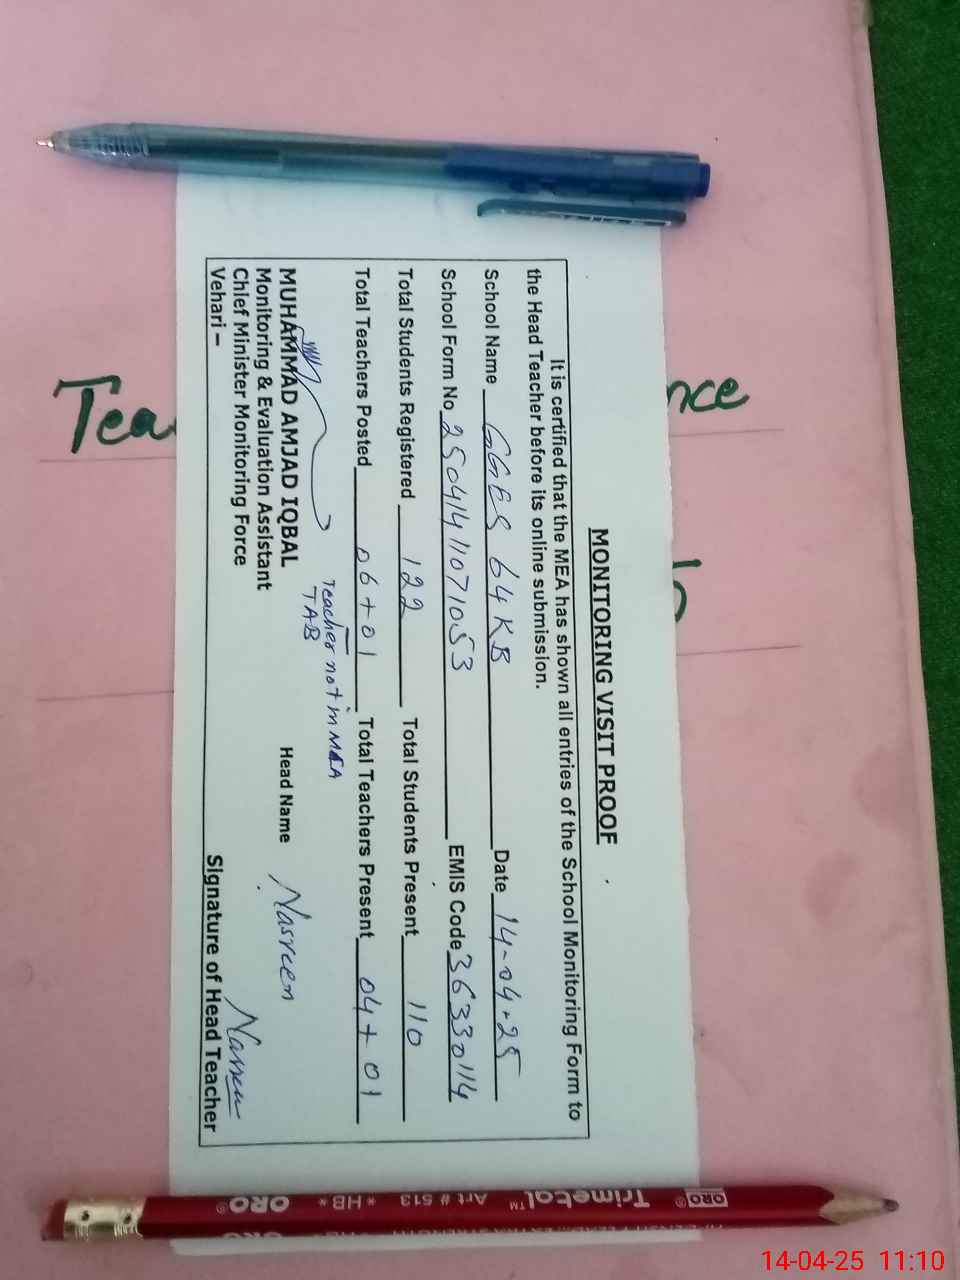 MONITORING VISIT PROOF
It is certified that the MEA has shown all entries of the School Monitoring Form to
the Head Teacher before its online submission.
School Name GGES 64 KB Date 14-04-25
School Form No 250414110710 53 EMIS Code 36330114
Total Students Registered 122 Total Students Present 110
Total Teachers Posted 06+01 Total Teachers Present 04+01
Teacher not in MEA
TAB
MUHAMMAD AMJAD IQBAL
Monitoring & Evaluation Assistant
Chief Minister Monitoring Force
Vehari –
Head Name Nasreen
Nasreen
Signature of Head Teacher
Tea nce
ORO Trimetal™ Art # 513 * HB * ORO
14-04-25 11:10